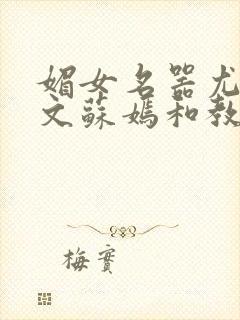 媚女名器尤
文蘇媽和教
梅實